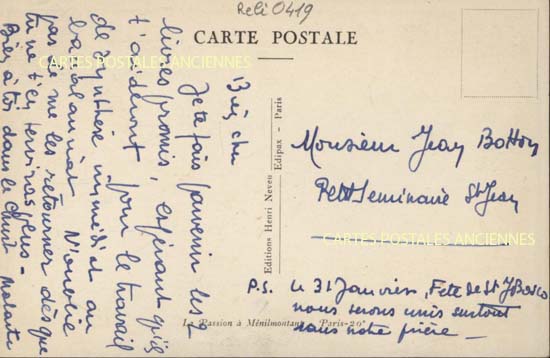 Reli 0419
CARTE POSTALE
CARTES POSTALES ANCIENNES
Bien cher
Je te fais parvenir les
livres promis, espérant qu'ils
t'aideront pour le travail
de synthèse immédiat au
baccalauréat. N'oublie
pas de me les retourner dès que
tu ne t'en serviras plus -
Bien à toi dans le Christ
Editions Henri Neveu
Edipax - Paris
Monsieur Jean
Petit Seminaire St Jean
CARTES POSTALES ANCIENNES
P.S. Le 31 Janvier, Fête de St J Bosco
nous serons unis surtout
dans notre prière -
La Passion à Ménilmontant Paris-20e